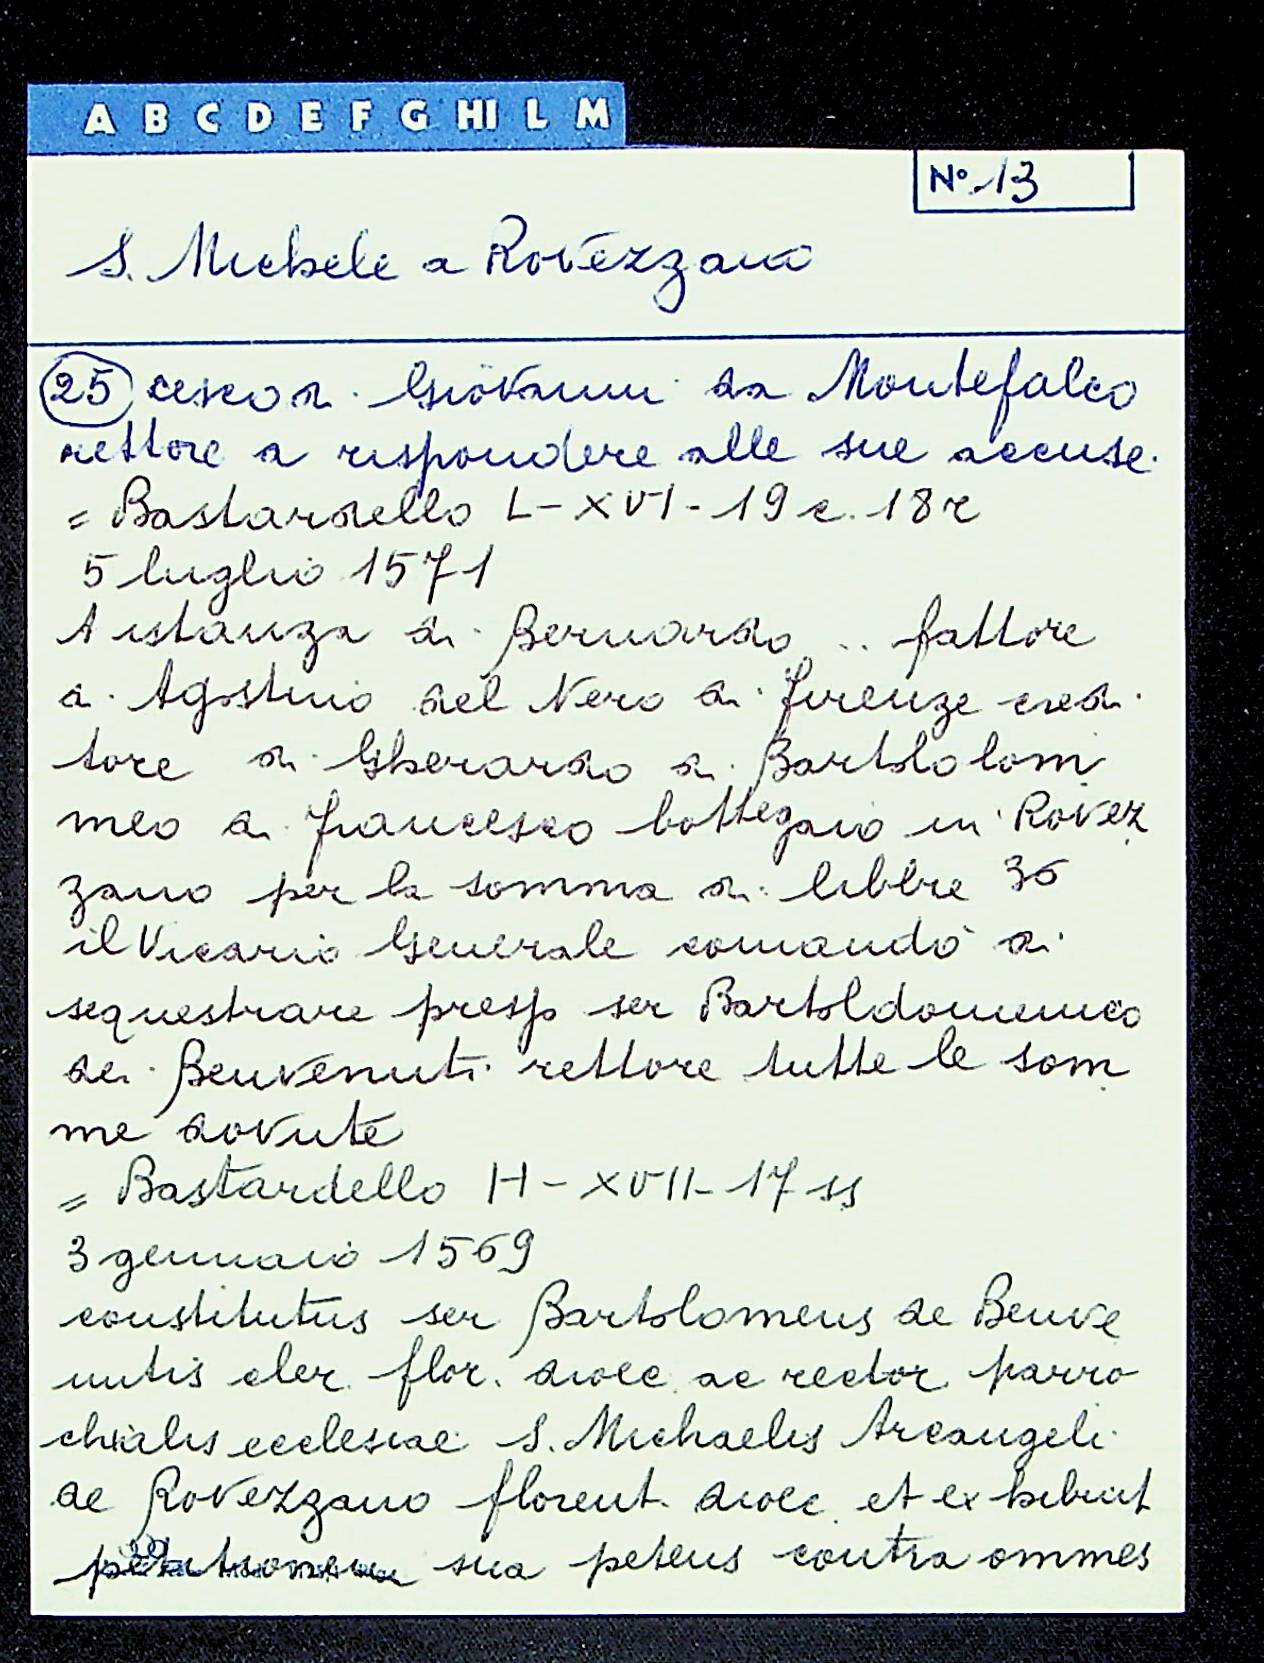 A B C D E F G HI L M
N° 13
S. Michele a Rovezzano
25 cesco di Giovanni da Montefalco
rettore a rispondere alle sue accuse.
= Bastardello L-XVI-19 c. 18r
5 luglio 1571
A istanza di Bernardo .. fattore
di Agostino del Nero di Firenze credi
tore di Gherardo di Bartolom
meo di Francesco bottegaio in Rovez
zano per la somma di libbre 36
il Vicario Generale comandò di
sequestrare presso ser Bartoldomenico
dei Benvenuti rettore tutte le som
me dovute
= Bastardello H-XVII-17 ss
3 gennaio 1569
constitutus ser Bartolomeus de Benve
nutis cler. flor. dioec. ac rector parro
chialis ecclesiae S. Michaelis Arcangeli
de Rovezzano florent. dioec. et exhibuit
petitionem sua petens contra ommes